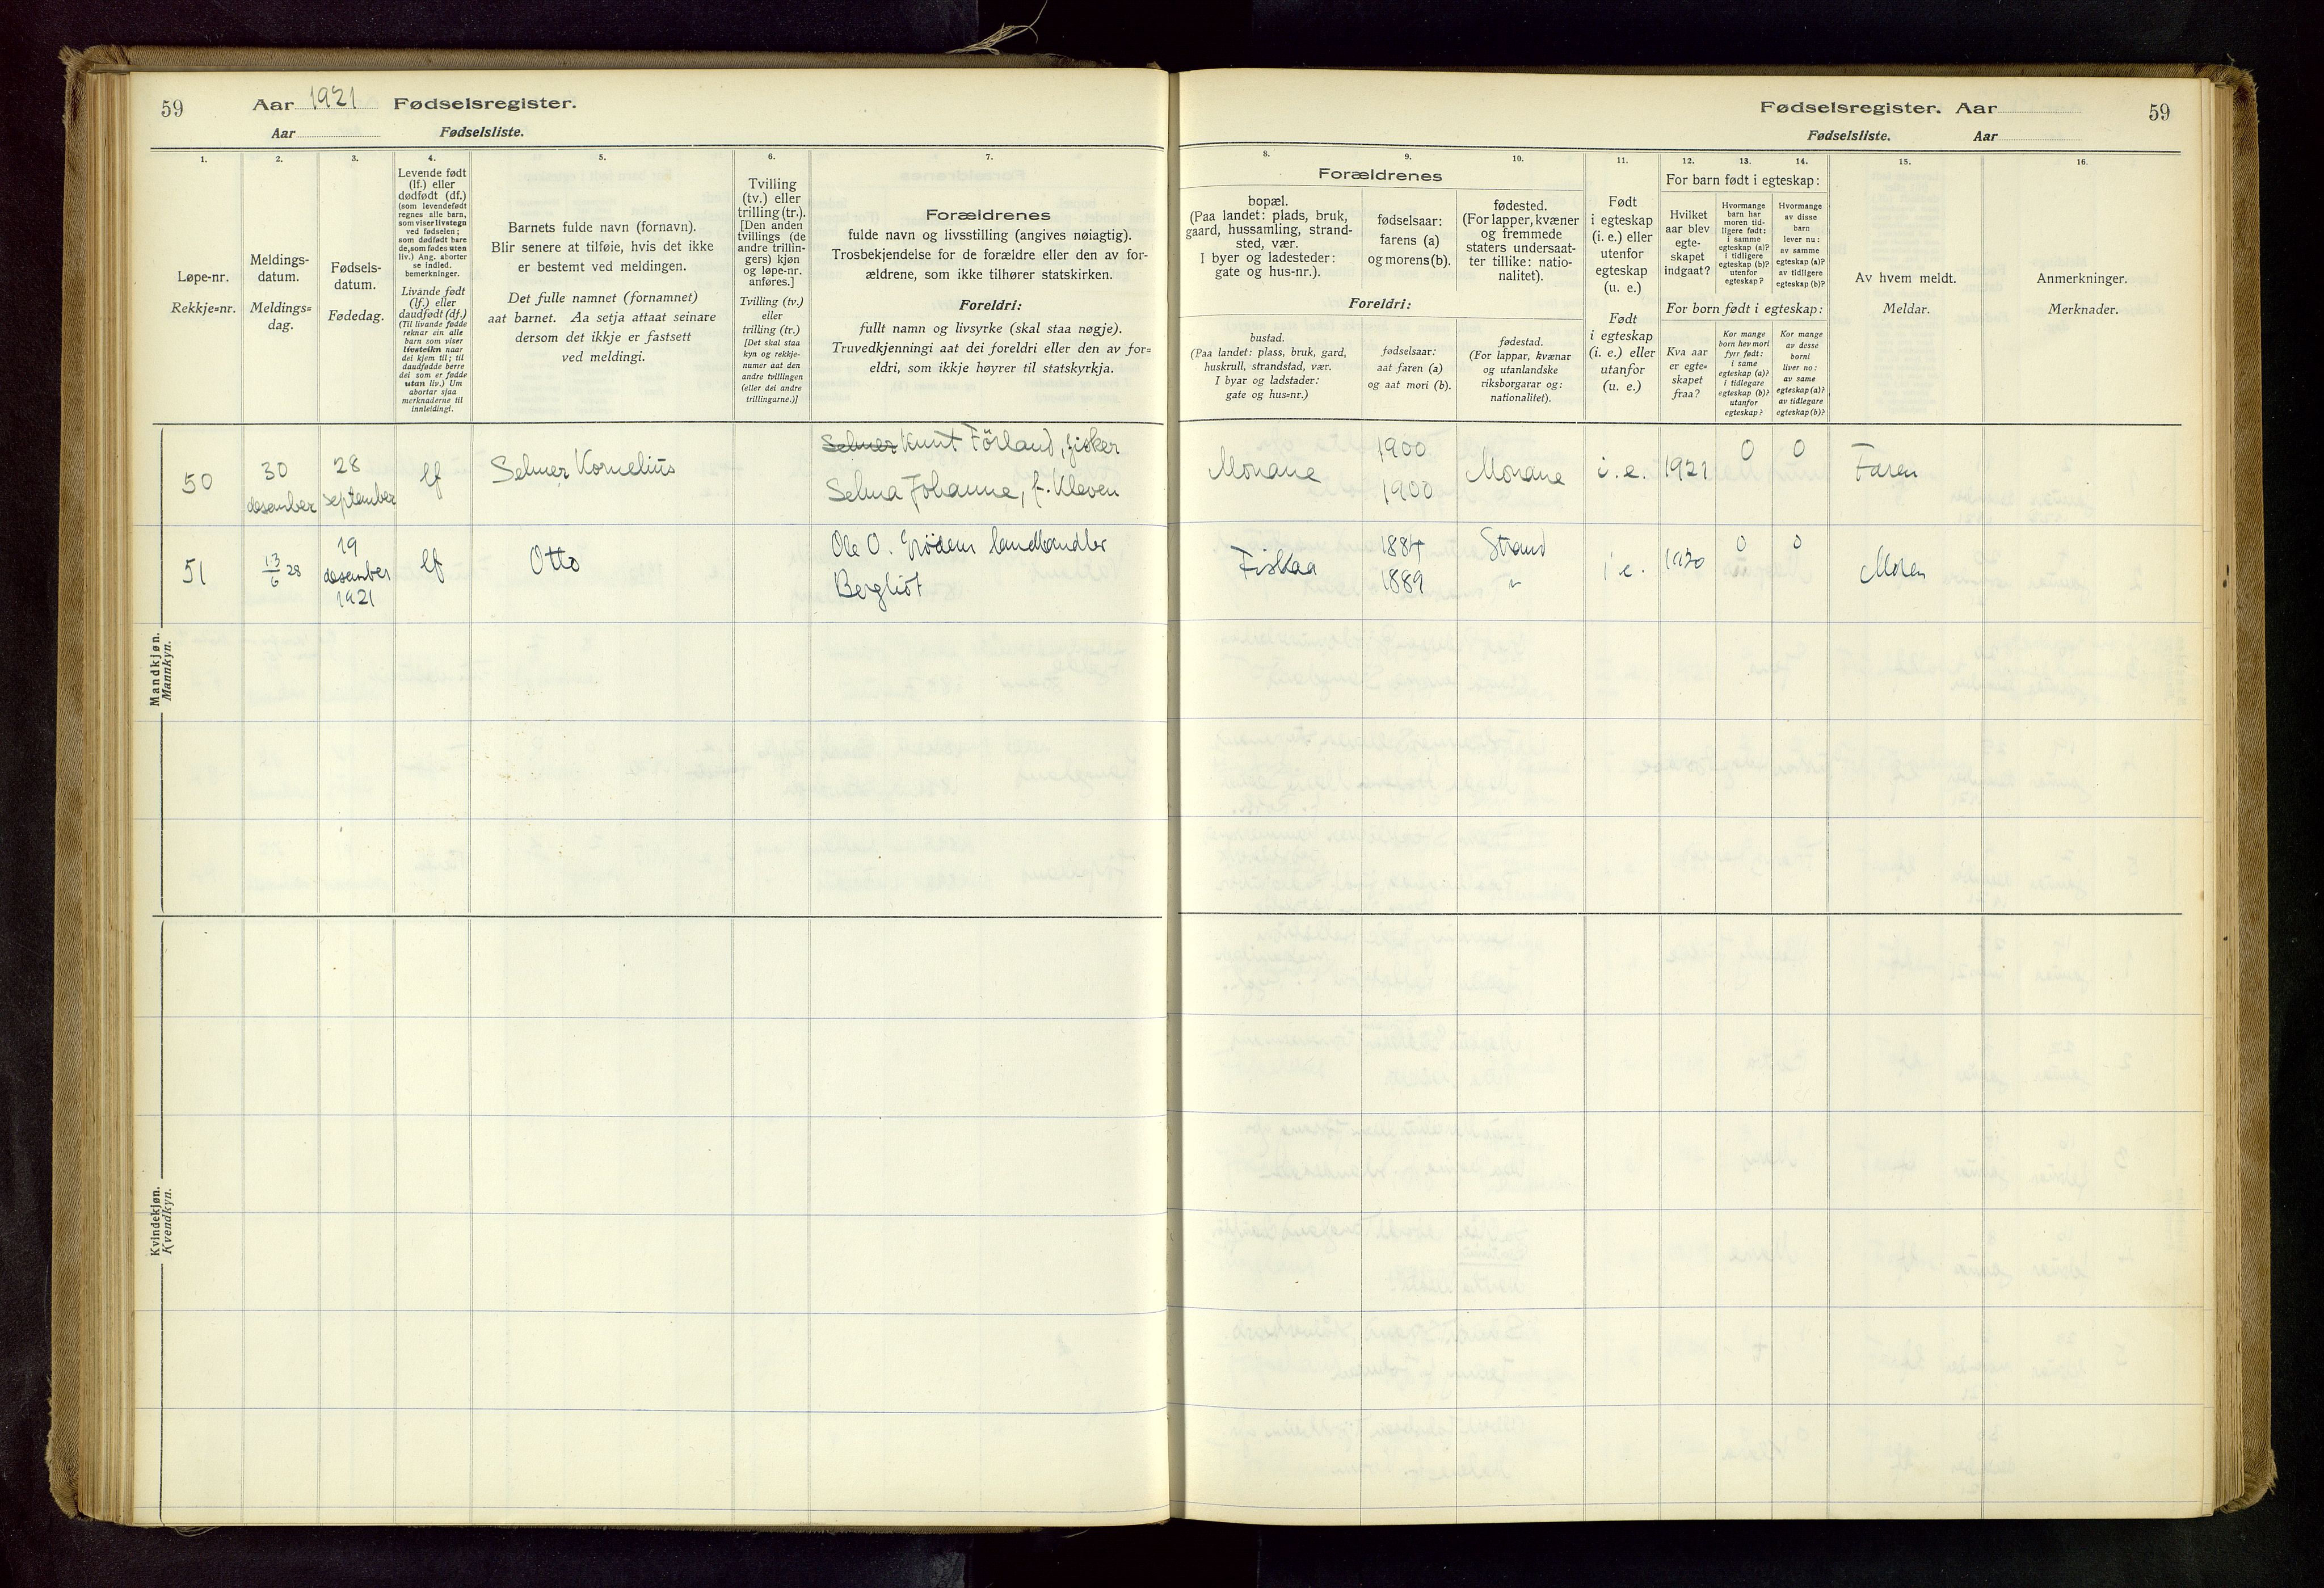 59 Aar 1921 Fødselsregister.
Aar Fødselsliste.
1.
Løpe-nr.
Rekkje=nr.
2.
Meldings-
datum.
Meldings=
dag.
3.
Fødsels-
datum.
Fødedag.
4.
Levende født
(lf.) eller
dødfødt (df.)
(som levendefødt
regnes alle barn,
som viser livstegn
ved fødselen;
som dødfødt bare
de, som fødes uten
liv.) Ang. aborter
se indled.
bemerkninger.
Livande født
(lf.) eller
daudfødt (df.)
(Til livande fødde
reknar ein alle
barn som viser
livsteikn naar
dei kjem til; til
daudfødde berre
dei som er fødde
utan liv.) Um
abortar sjaa
merknaderne til
innleidingi.
5.
Barnets fulde navn (fornavn).
Blir senere at tilføie, hvis det ikke
er bestemt ved meldingen.
Det fulle namnet (fornamnet)
aat barnet. Aa setja attaat seinare
dersom det ikkje er fastsett
ved meldingi.
6.
Tvilling
(tv.) eller
trilling (tr.).
[Den anden
tvillings (de
andre trillin-
gers) kjøn
og løpe-nr.
anføres.]
Tvilling (tv.)
eller
trilling (tr.)
[Det skal staa
kyn og rekkje-
numer aat den
andre tvillingen
(eller dei andre
trillingarne.)]
7.
Forældrenes
fulde navn og livsstilling (angives nøiagtig).
Trosbekjendelse for de forældre eller den av for-
ældrene, som ikke tilhører statskirken.
Foreldri:
fullt namn og livsyrke (skal staa nøgje).
Truvedkjenningi aat dei foreldri eller den av for=
eldri, som ikkje høyrer til statskyrkja.
50
30
desember
28
september
lf
Selmer Kornelius
Selmer Knut Förland, fisker
Selma Johanne, f. Kleven
51
13/6 28
19
desember
1921
lf
Otto
Ole O. Grödem landhandler
Bergliot
Mandkjøn.
Mannkyn.
Kvindekjøn.
Kvendkyn.
Fødselsregister. Aar 59
Fødselsliste. Aar
8.
Forældrenes
bopæl.
(Paa landet: plads, bruk,
gaard, hussamling, strand-
sted, vær.
I byer og ladesteder:
gate og hus-nr.).
Foreldri:
bustad.
(Paa landet: plass, bruk, gard,
huskrull, strandstad, vær.
I byar og ladstader:
gate og hus=nr.)
9.
fødselsaar:
farens (a)
og morens (b).
fødselsaar:
aat faren (a)
og aat mori (b).
10.
fødested.
(For lapper, kvæner
og fremmede
staters undersaat-
ter tillike: natio-
nalitet).
fødestad.
(For lappar, kvænar
og utanlandske
riksborgarar og:
nationalitet).
11.
Født
i egteskap
(i. e.) eller
utenfor
egteskap
(u. e.)
Født
i egteskap
(i. e.) eller
utanfor
(u. e.)
For barn født i egteskap:
12.
Hvilket
aar blev
egte-
skapet
indgaat?
13.
Hvormange
barn har
moren tid-
ligere født:
i samme
egteskap (a)?
i tidligere
egteskap (b)?
utenfor
egteskap?
14.
Hvormange
av disse
barn
lever nu:
av samme
egteskap (a)?
av tidligere
egteskap (b)?
For born født i egteskap:
Kva aar
er egte=
skapet
fraa?
Kor mange
born hev mori
fyrr født:
i same
egteskap (a)?
i tidlegare
egteskap (b)?
utanfor
egteskap?
Kor mange
av desse
borni
liver no:
av same
egteskap (a)?
av tidlegare
egteskap (b)?
15.
Av hvem meldt.
Meldar.
16.
Anmerkninger.
Merknader.
Monane
1900
1900
Monane
i. e.
1921
0
0
Faren
Fiskaa
1884
1889
Strand
"
i e.
1920
0
0
Moren